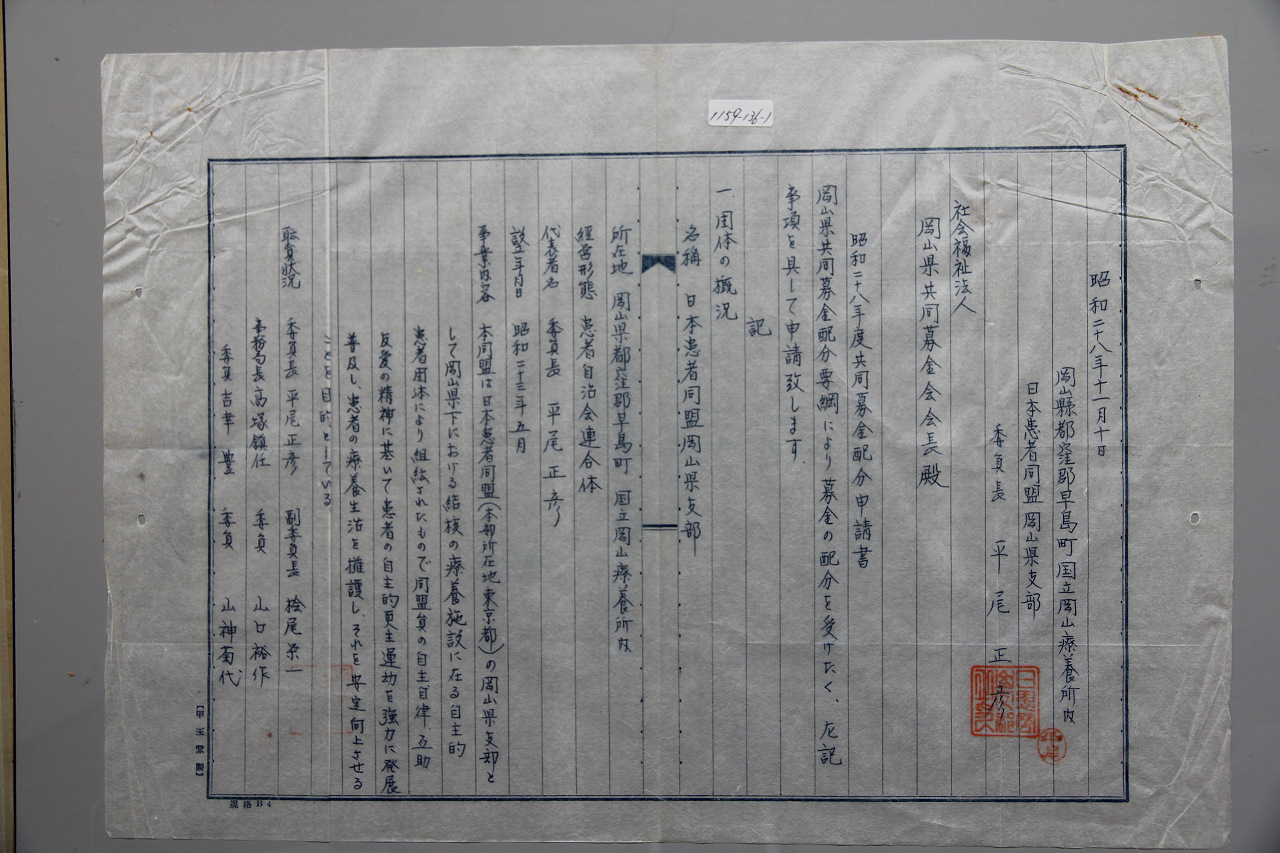 1154-136-1
昭和二十八年十一月十日
岡山縣都窪郡早島町国立岡山療養所内
日本患者同盟岡山県支部
委員長 平尾正彦
社会福祉法人
岡山県共同募金会会長殿
昭和二十八年度共同募金配分申請書
岡山県共同募金配分要綱により募金の配分を受けたく、左記
事項を具して申請致します.
記
一 団体の概況
名稱 日本患者同盟岡山県支部
所在地 岡山県都窪郡早島町 国立岡山療養所内
経営形態 患者自治会連合体
代表者名 委員長 平尾正彦
設立年月日 昭和二十三年五月
事業内容 本同盟は日本患者同盟(本部所在地東京都)の岡山県支部と
して岡山県下における結核の療養施設に在る自主的
患者団体により組織されたもので同盟員の自主自律互助
友愛の精神に基いて患者の自主的更生運動を強力に発展
普及し、患者の療養生活を擁護し、それを安定向上させる
ことを目的としている
職員状況 委員長 平尾正彦 副委員長 桧尾京一
事務局長 高塚鎮任 委員 山口裕作
委員 吉幸豊 委員 山神菊代
【甲玉堂製】
規格B4